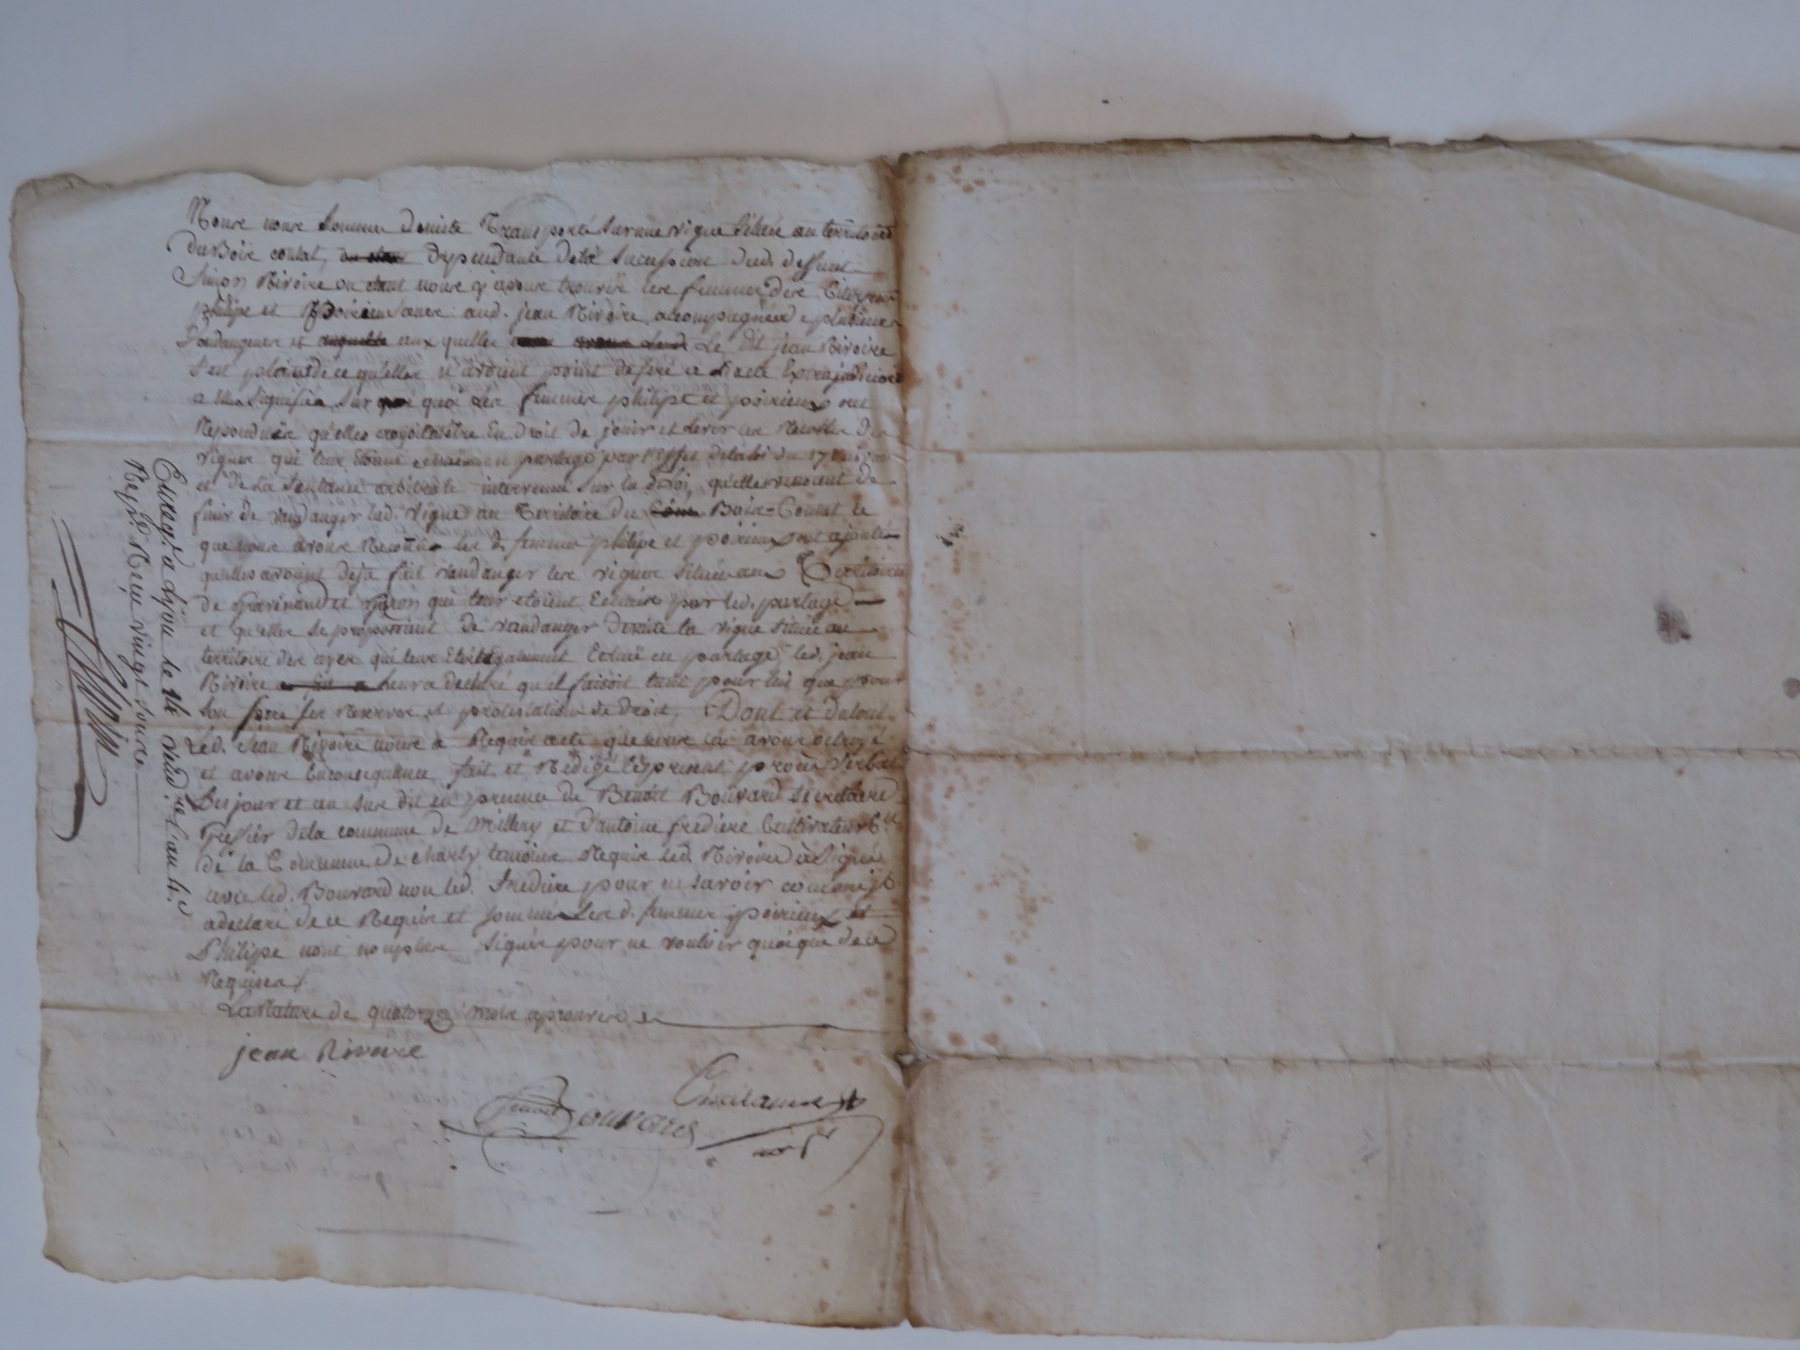 Nous nous sommes de suite Transporté sur une vigne située au territoire
du Bois contat, dependante de la succession dud. deffunt
Simon Rivoire ou étant nous y avons trouvée les femmes des Citoyens
philipe et poirieux avec aud. jean Rivoire accompagnées de plusieurs
vandangeur et aux quelles Le dit jean Rivoire
s'est plaint de ce qu'elles n'avoient point deferé a l'acte Extrajudiciaire
a elles signifiée sur quoi les femmes philipe et poirieux ont
Repondues qu'elles croyoient être En droit de jouir et lever les Recoltes des
vignes qui leur étant échües en partage par l'effet de la loi du 17
et de la Sentance arbitrale intervenue sur la d. loi, qu'elles venoient de
faire de vandanger lad. vigne au Territoire du Bois-Contat ce
que nous avons Reconnu les d. femmes philipe et poirieux ont ajouté
qu'elles avoient deja fait vandanger les vignes située aux Territoires
de et qui leur etoient Echües par led. partage
et qu'elles se proposoient de vandanger de suite la vigne située au
territoire des ayes qui leur etoit également Echüe en partage, led. jean
Rivoire leur a declaré qu'il faisoit tant pour lui que pour
son frere ses Reserves et protestations de droit, Dont et du tout
Led. Jean Rivoire nous a Requis acte que nous lui avons octroyé
et avons En consequence fait et Redigé le present procès verbal
Les jour et an sus dit en presence de Benoit Bouvard secretaire
Greffier de la commune de Millery et d'antoine frediere Cultivateur
de la Commune de charly temoins Requis led. Rivoire a signé
avec led. Bouvard non led. frediere pour ne savoir comme il
a declaré de ce Requis et sommé les d. femmes poirieux et
Philippe n'ont non plus signées pour ne vouloir quoique de ce
Requises
La Rature de quatorze mots aprouvée
jean Rivoire
Benoit Bouvard
Enregt. a Lyon le 14 vend.re l'an 4.e
Reçu vingt sous